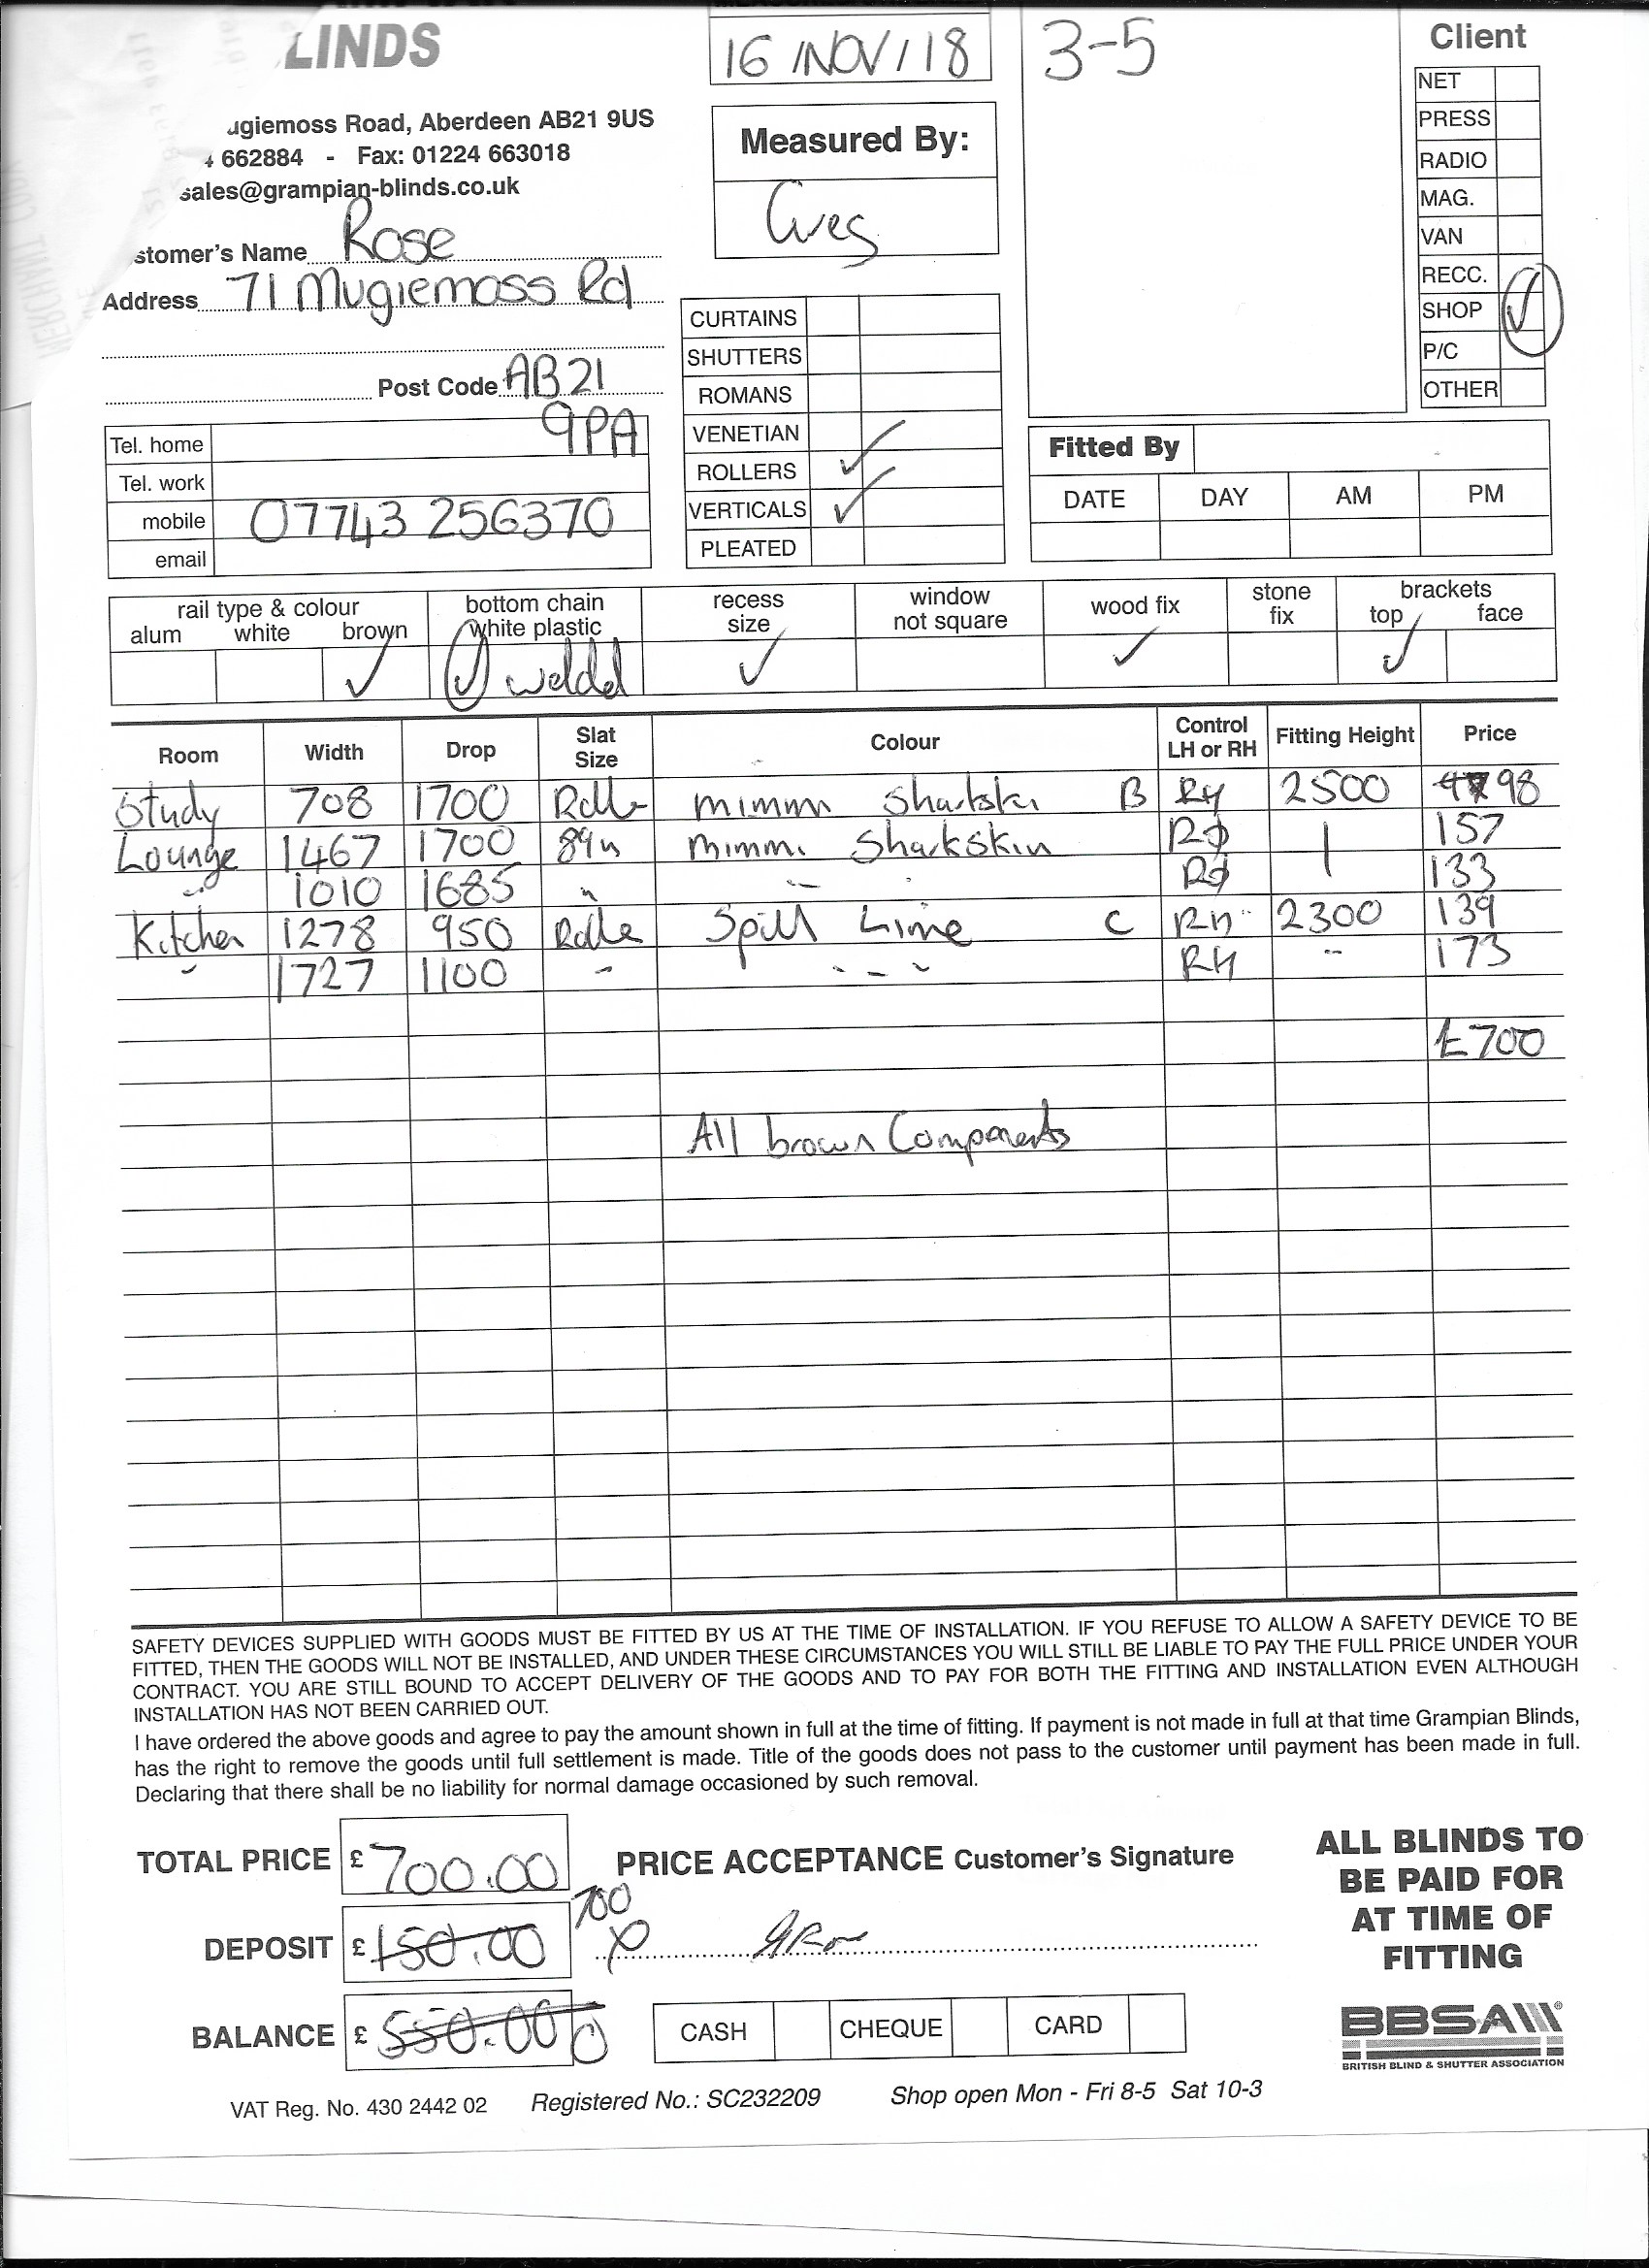 LINDS
16 /NOV/ 18
3-5
Client
NET
PRESS
RADIO
MAG.
VAN
RECC.
SHOP ✓
P/C
OTHER
ugiemoss Road, Aberdeen AB21 9US
4 662884 - Fax: 01224 663018
sales@grampian-blinds.co.uk
Measured By:
Greg
stomer's Name Rose
Address 71 Mugiemoss Rd
Post Code AB21
9PA
Tel. home
Tel. work
mobile 07743 256370
email
CURTAINS
SHUTTERS
ROMANS
VENETIAN
ROLLERS ✓
VERTICALS ✓
PLEATED
Fitted By
DATE DAY AM PM
rail type & colour bottom chain recess window wood fix stone brackets
alum white brown white plastic size not square fix top face
✓ ✓ welded ✓ ✓ ✓
Room Width Drop Slat Size Colour Control LH or RH Fitting Height Price
Study 708 1700 Rolle mimmi Sharkski B RH 2500 98
Lounge 1467 1700 89m mimmi Sharkskin 157
" 1010 1685 " " 133
Kitchen 1278 950 Rolle Spill Lime C RH 2300 139
" 1727 1100 " " " " RH " 173
£700
All brown Components
SAFETY DEVICES SUPPLIED WITH GOODS MUST BE FITTED BY US AT THE TIME OF INSTALLATION. IF YOU REFUSE TO ALLOW A SAFETY DEVICE TO BE
FITTED, THEN THE GOODS WILL NOT BE INSTALLED, AND UNDER THESE CIRCUMSTANCES YOU WILL STILL BE LIABLE TO PAY THE FULL PRICE UNDER YOUR
CONTRACT. YOU ARE STILL BOUND TO ACCEPT DELIVERY OF THE GOODS AND TO PAY FOR BOTH THE FITTING AND INSTALLATION EVEN ALTHOUGH
INSTALLATION HAS NOT BEEN CARRIED OUT.
I have ordered the above goods and agree to pay the amount shown in full at the time of fitting. If payment is not made in full at that time Grampian Blinds,
has the right to remove the goods until full settlement is made. Title of the goods does not pass to the customer until payment has been made in full.
Declaring that there shall be no liability for normal damage occasioned by such removal.
TOTAL PRICE £ 700.00
PRICE ACCEPTANCE Customer's Signature
700
DEPOSIT £ 150.00
X
BALANCE £ 550.00 0
CASH CHEQUE CARD
ALL BLINDS TO
BE PAID FOR
AT TIME OF
FITTING
BBSA
BRITISH BLIND & SHUTTER ASSOCIATION
VAT Reg. No. 430 2442 02 Registered No.: SC232209 Shop open Mon - Fri 8-5 Sat 10-3